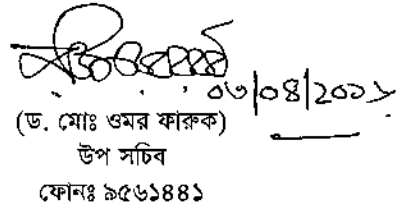 ০৩|০৪|২০১১
(ড. মোঃ ওমর ফারুক)
উপ সচিব
ফোনঃ ৯৫৬১৪৪১